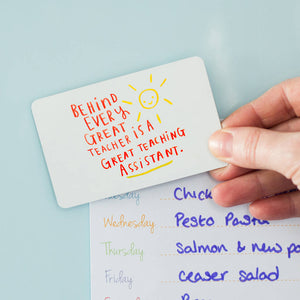 BEHIND
EVERY
GREAT
TEACHER IS A
GREAT TEACHING
ASSISTANT.
Tuesday
Wednesday Pesto Pasta
Thursday Salmon & new
Friday ceaser salad